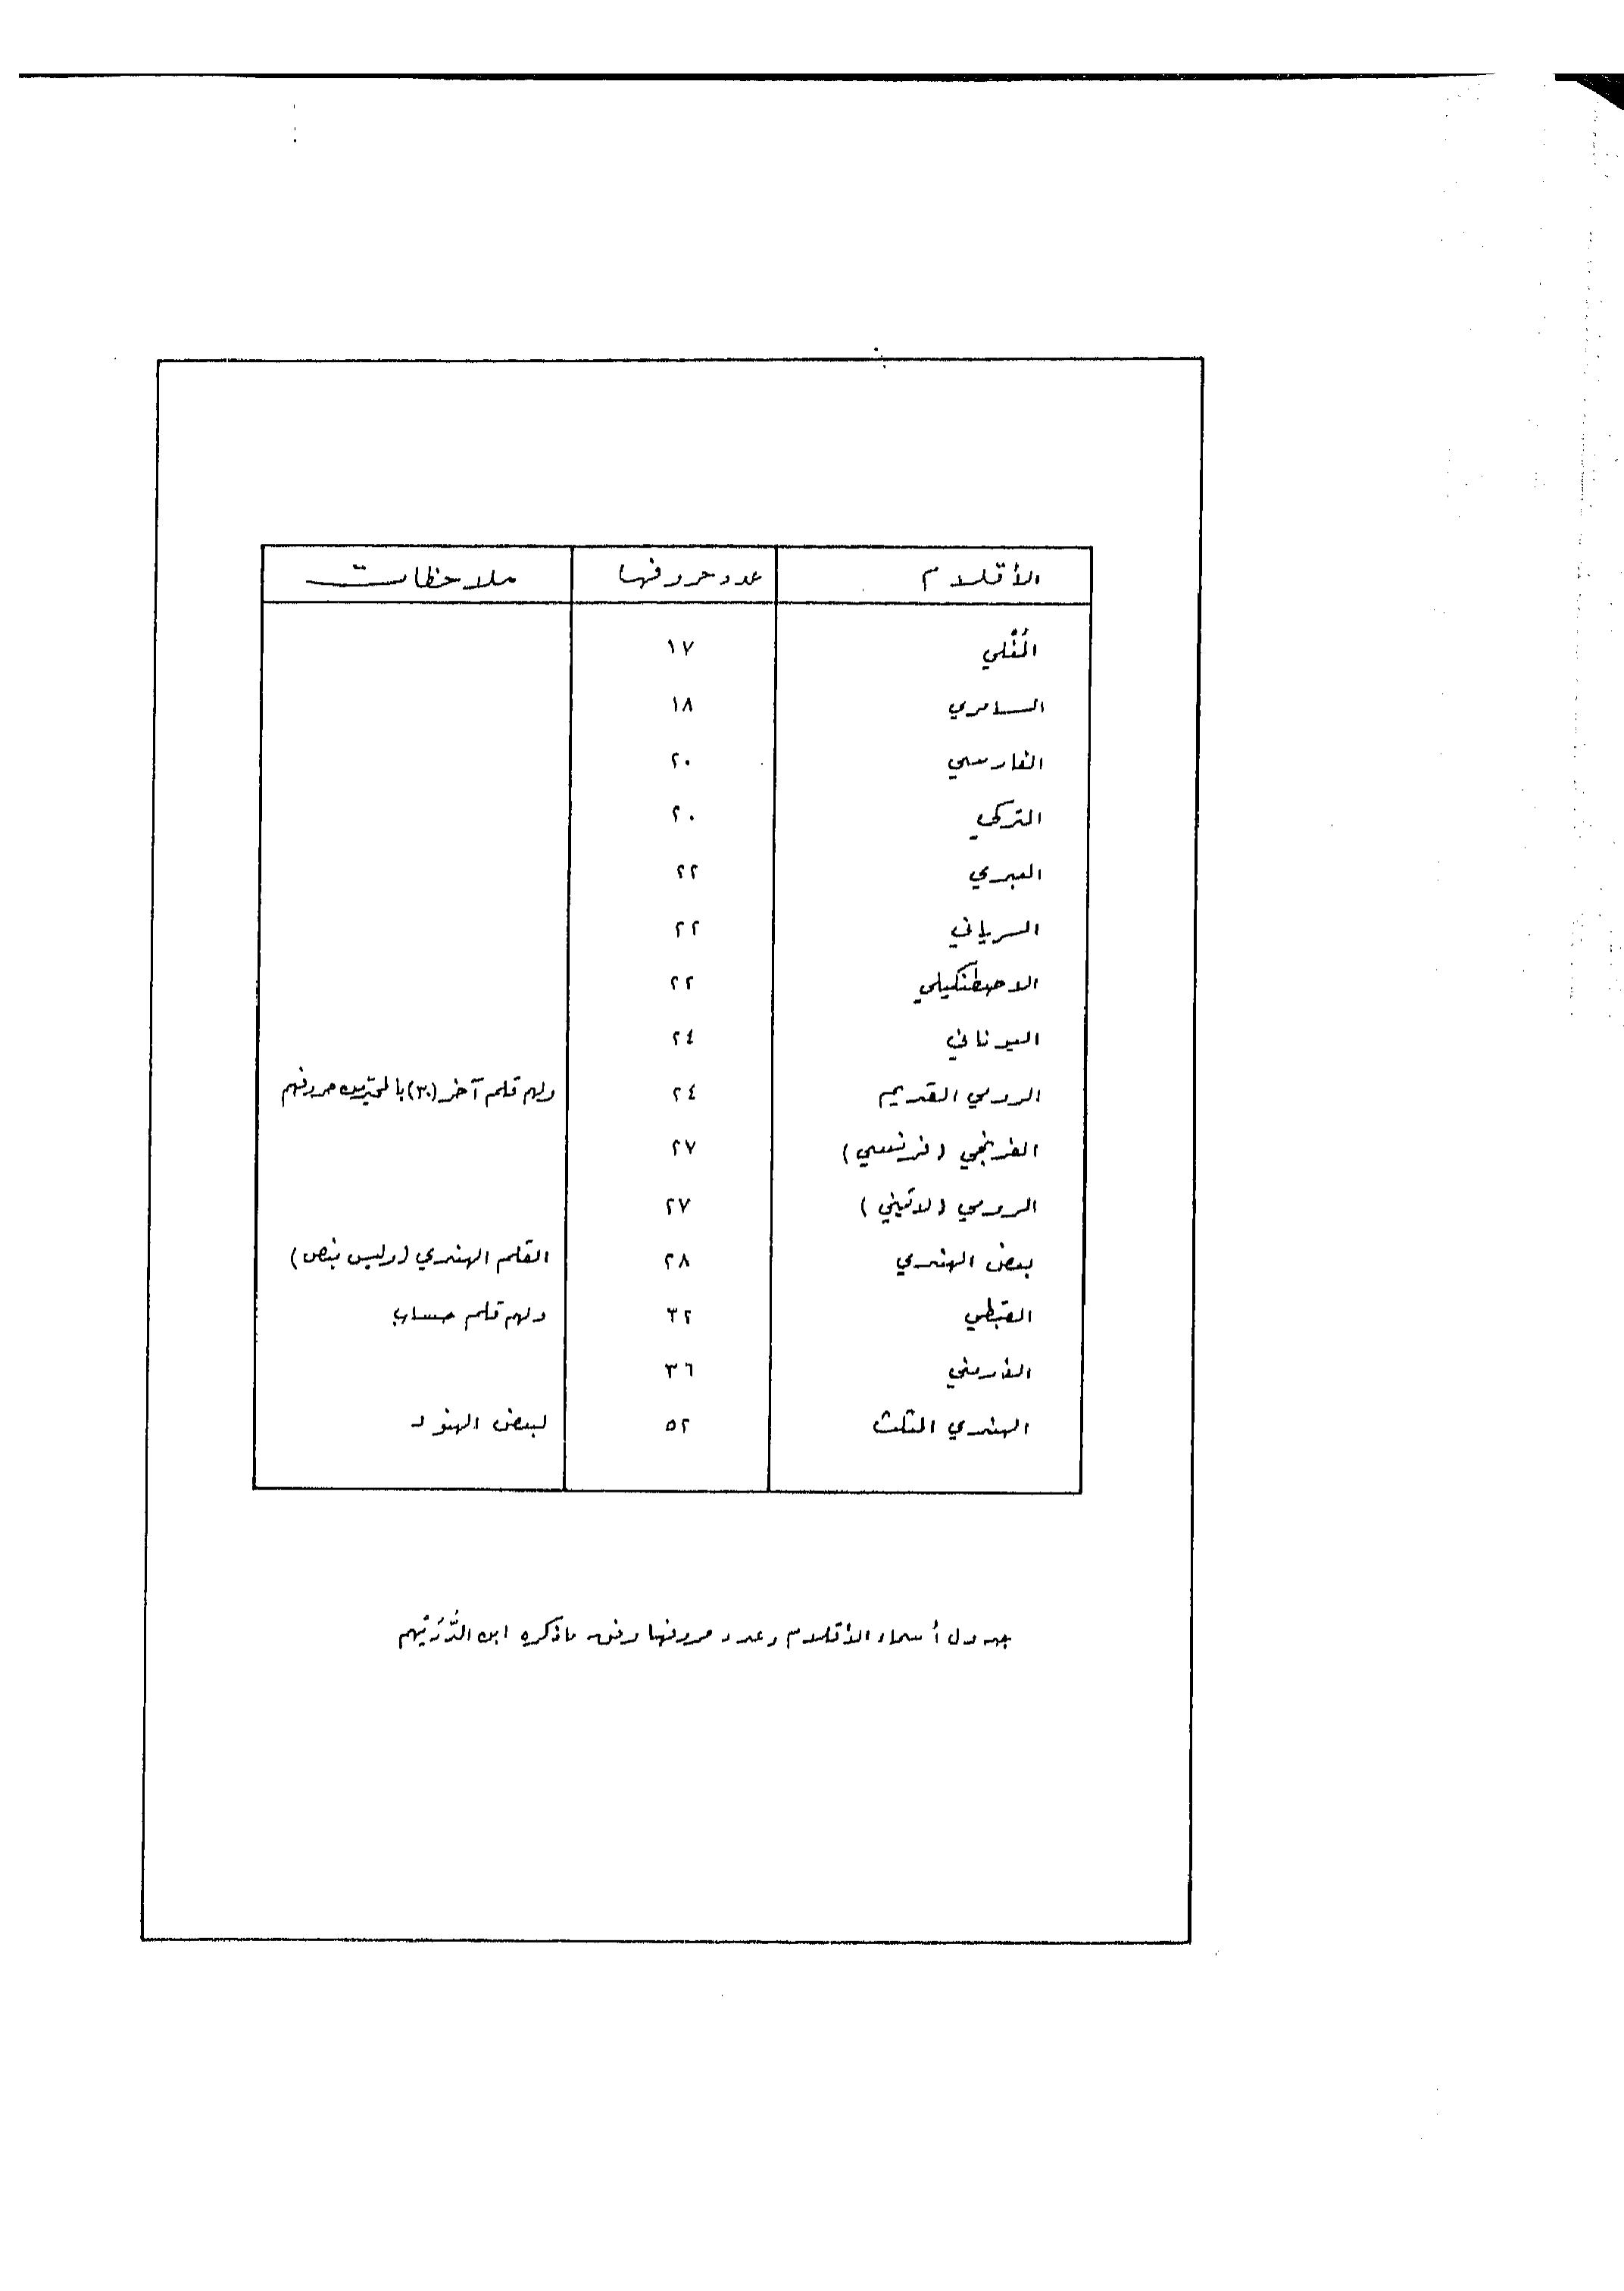 الأقلام عدد حروفها ملاحظات
المُغْلي ١٧
السامري ١٨
الفارسي ٢٠
التركي ٢٠
العبري ٢٢
السرياني ٢٢
الاصطنكيلي ٢٢
اليوناني ٢٤
الرومي القديم ٢٤ ولهم قلم آخر (٣٠) حروفهم
الفرنجي (فرنسي) ٢٧
الرومي (لاتيني) ٢٧
بعض الهندي ٢٨ القلم الهندي (وليس بنص)
القبطي ٣٢ ولهم قلم حساب
الأرمني ٣٦
الهندي المثلث ٥٢ لبعض الهنود
جدول أسماء الأقلام وعدد حروفها وفق ماذكره ابن الدُّرَيْهم